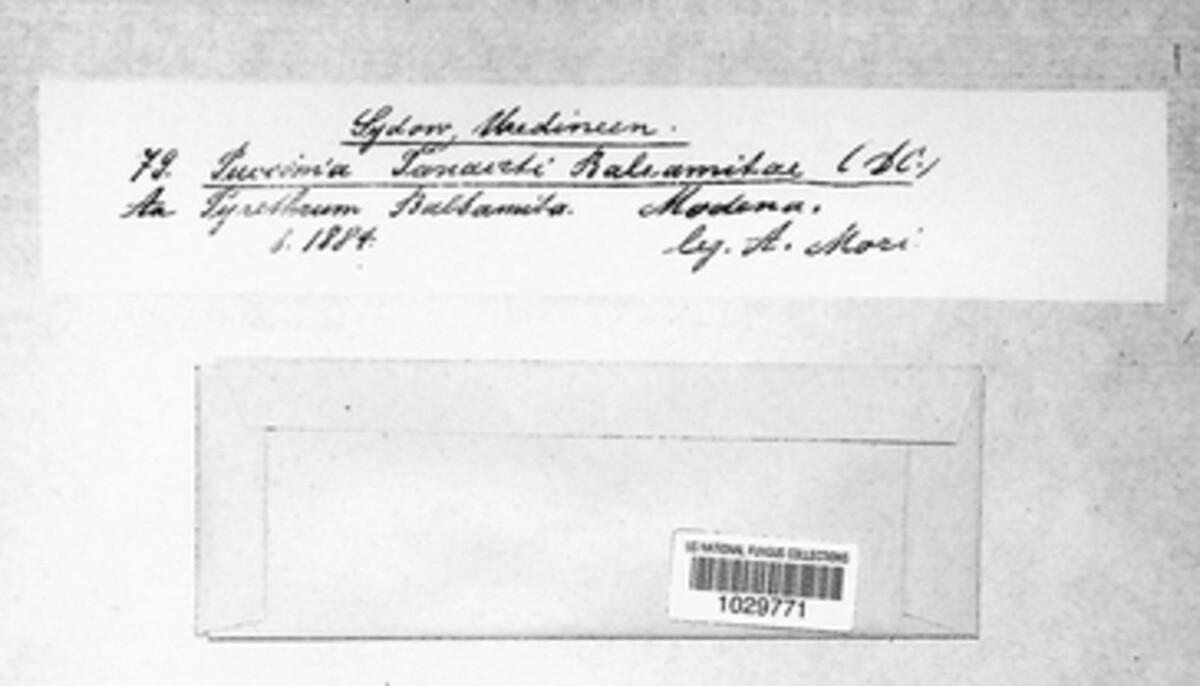 Sydow, Uredineen.
79. Puccinia Tanaceti Balsamitae (DC.)
An Pyrethrum Balsamita. Modena.
6. 1884. leg. A. Mori
US NATIONAL FUNGUS COLLECTIONS
1029771